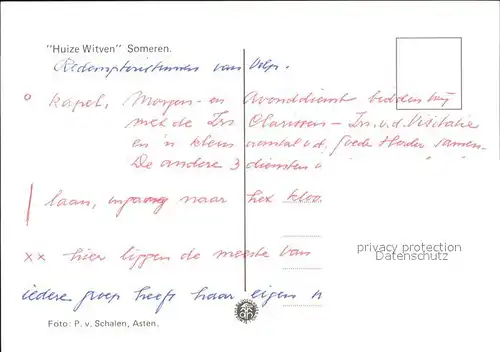 "Huize Witven" Someren.
Redemptoristinnen van
o kapel, Morgen- en Avonddienst bidden wij
met de Zrs Clarissen - Zrs. v. d. Visitatie
en 'n klein aantal v. d. goede Herder samen.
De andere 3 diensten "
laan, ingang naar het kloo
xx hier liggen de meeste van
iedere groep heeft haar eigen
privacy protection
Datenschutz
Foto: P. v. Schalen, Asten.